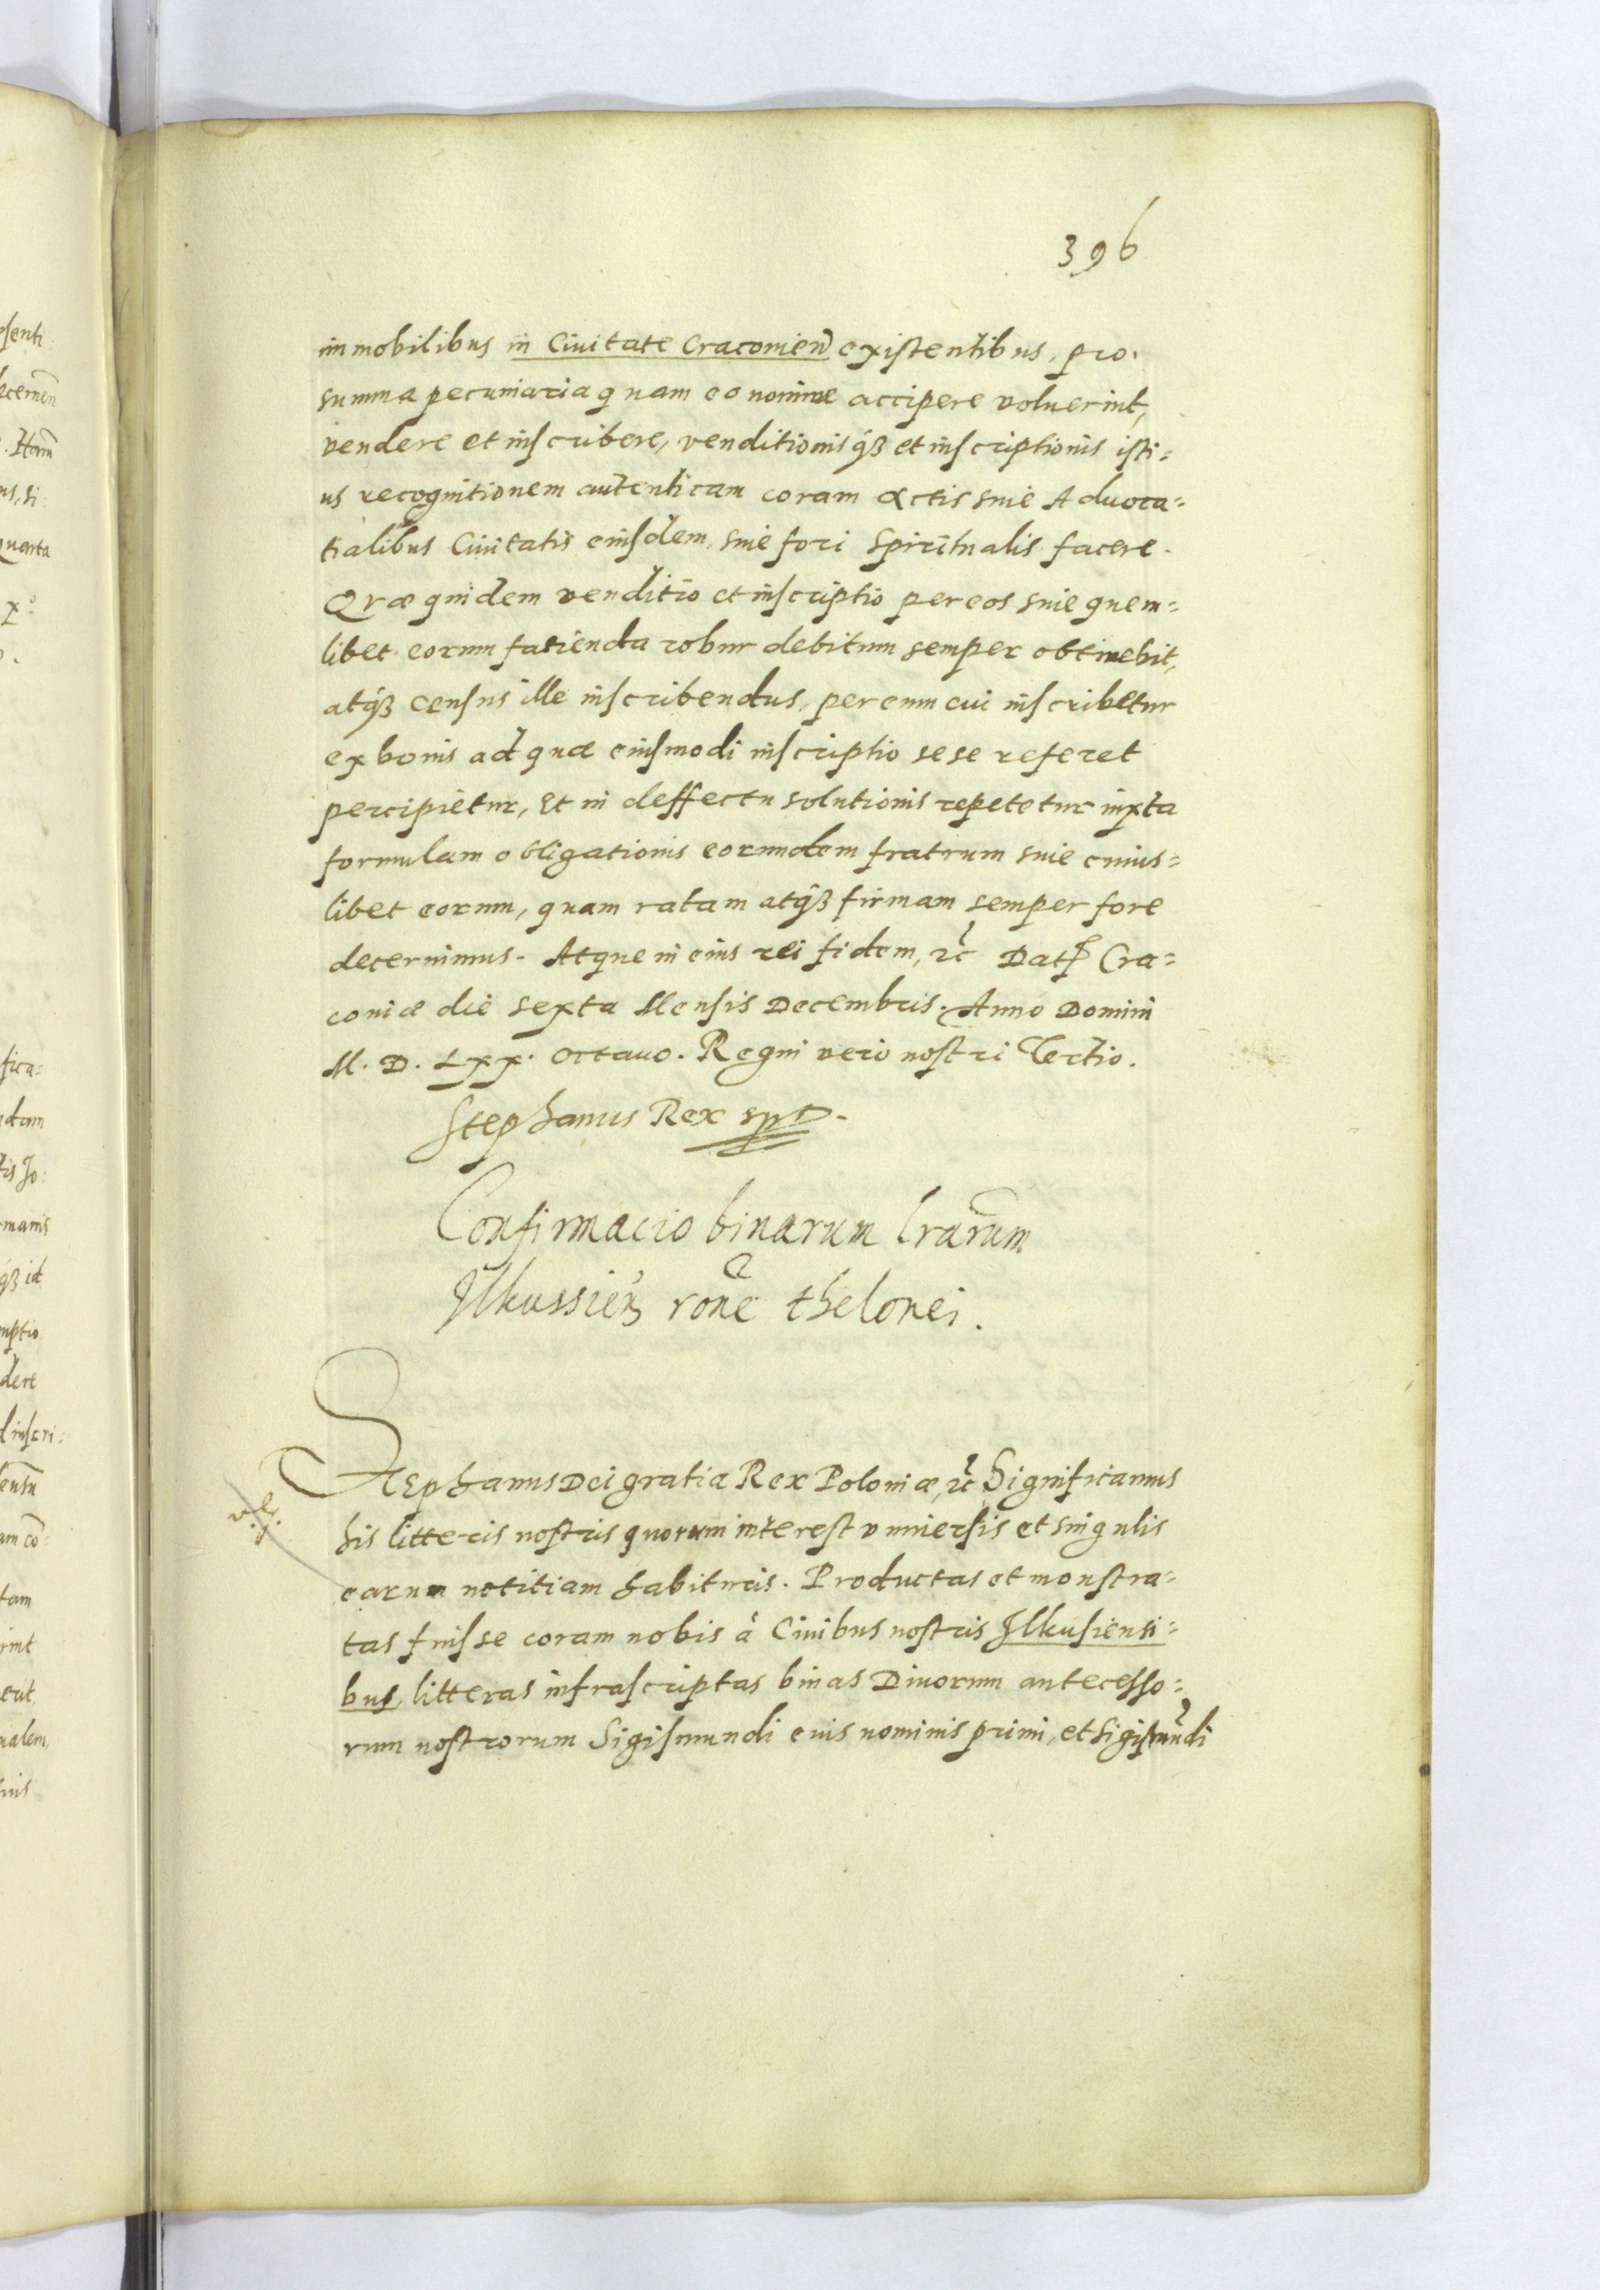 396
immobilibus in Ciuitate Cracouien̄ existentibus, pro.
summa pecuniaria quam eo nomine accipere voluerint,
vendere et inscribere, venditionisq́ꝫ et inscriptionis isti=
us recognitionem autenticam coram actis siue Aduoca=
tialibus Ciuitatis eiusdem, siue fori Spiritualis facere.
Quæ quidem venditio et inscriptio per eos siue quem=
libet eorum facienda robur debitum semper obtinebit,
atq́ꝫ census ille inscribendus, per eum cui inscribetur
ex bonis ad quæ eiusmodi inscriptio sese referet
percipietur, Et in deffectu solutionis repetetur iuxta
formulam obligationis eorumdem fratrum siue cuius=
libet eorum, quam ratam atq́ꝫ firmam semper fore
decernimus. Atque in eius rei fidem, ꝛc̃ Datꝭ Cra=
couiæ die sexta Mensis Decembris. Anno Domini
M. D. Lxx. octauo. Regni vero nostri Tertio.
Stephanus Rex sspt.
Confirmacio binarum lrarum̄
Ilkussień rone thelonei.
Stephanus Dei gratia Rex Poloniæ, ꝛc̃ Significamus
his litteris nostris quorum interest vniuersis et singulis
earum notitiam habituris. Productas et monstra=
tas fuisse coram nobis à Ciuibus nostris Ilkusiensi=
bus, litteras infrascriptas binas Diuorum antecesso=
rum nostrorum Sigismundi eius nominis primi, et Sigismūdi